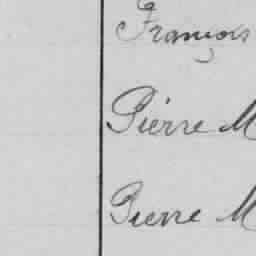 François
Pierre M
Pierre M